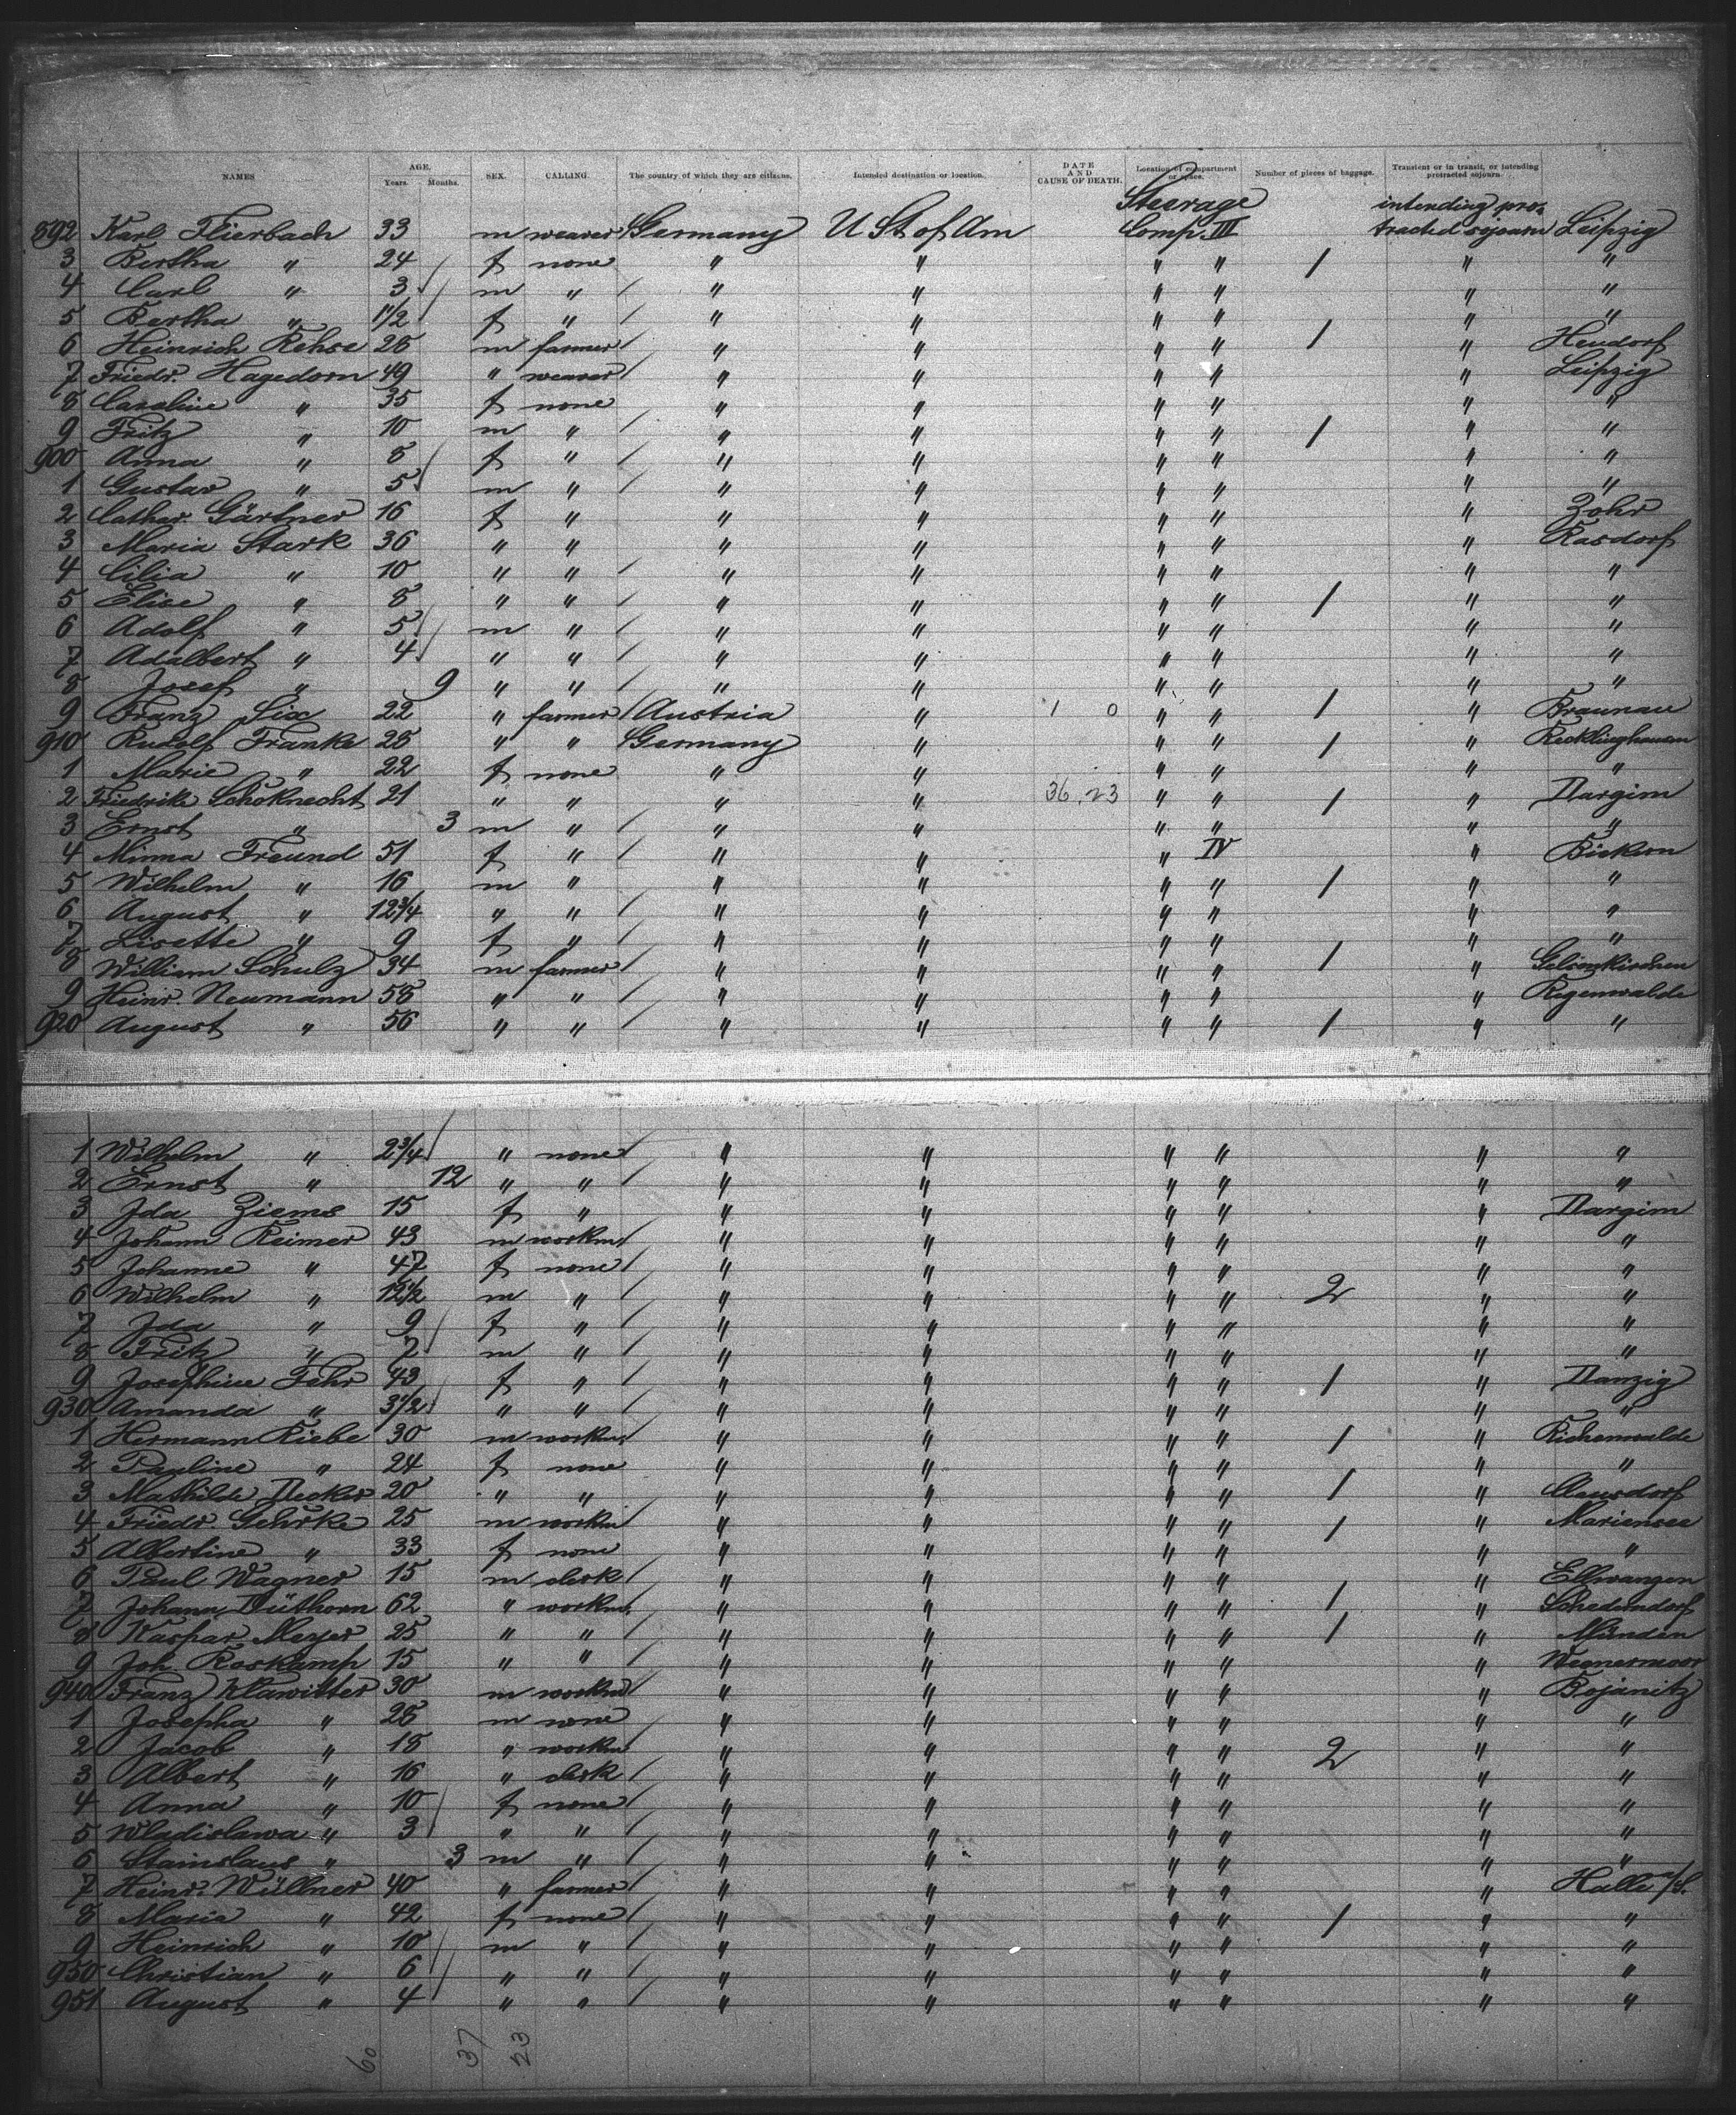 NAMES AGE. Years. Months. SEX. CALLING. The country of which they are citizens. Intended destination or location. DATE AND CAUSE OF DEATH. Location of compartment or space. Number of pieces of baggage. Transient or in transit, or intending protracted sojourn.
892 Karl Flierbach 33 m weaver Germany U St of Am Steerage Comp. III intending protracted sojourn Leipzig
3 Bertha " 24 f none " " " " / " "
4 Carl " 3 m " " " " " " "
5 Bertha " 1 1/2 f " " " " " " "
6 Heinrich Rehse 28 m farmer " " " " / " Heudorf
7 Friedr. Hagedorn 49 " weaver " " " " " Leipzig
8 Caroline " 35 f none " " " " " "
9 Fritz " 10 m " " " " " / " "
900 Anna " 8 f " " " " " " "
1 Gustav " 5 m " " " " " " "
2 Cathar. Gärtner 16 f " " " " " " Zohr
3 Maria Stark 36 " " " " " " " Rasdorf
4 Cilia " 10 " " " " " " " "
5 Elise " 8 " " " " " " / " "
6 Adolf " 5 m " " " " " " "
7 Adalbert " 4 " " " " " " " "
8 Josef " 9 " " " " " " " "
9 Franz Six 22 " farmer Austria " 1 0 " " / " Braunau
910 Rudolf Franke 28 " " Germany " " " / " Recklinghausen
1 Marie " 22 f none " " " " " "
2 Friedrike Schöknecht 21 " " " " 36.23 " " / " Dargim
3 Ernst " 3 m " " " " " " "
4 Minna Freund 51 f " " " " IV "
5 Wilhelm " 16 m " " " " " / " "
6 August " 12 3/4 " " " " " " " "
7 Lisette " 9 f " " " " " " "
8 William Schulz 34 m farmer " " " " / " Gelsenkirchen
9 Heinr. Neumann 58 " " " " " " " Regenwalde
920 August " 56 " " " " " " / " "
1 Wilhelm " 2 3/4 " none " " " " " "
2 Ernst " 12 " " " " " " " "
3 Ida Ziems 15 f " " " " " " Dargim
4 Johann Reimer 43 m workm " " " " " "
5 Johanne " 47 f none " " " " " "
6 Wilhelm " 12 1/2 m " " " " " 2 " "
7 Ida " 9 f " " " " " " "
8 Fritz " 7 m " " " " " " "
9 Josephine Fehr 43 f " " " " " / " Danzig
930 Amanda " 3 1/2 " " " " " " " "
1 Hermann Riebe 30 m workm " " " " / " Richenwalde
2 Pauline " 24 f none " " " " " "
3 Mathilde Decker 20 " " " " " " / "
4 Friedr Gehrke 25 m workm " " " " / " Mariensee
5 Albertine " 33 f none " " " " " "
6 Paul Wagner 15 m clerk " " " " " Ellwangen
7 Johann Düthorn 62 " workm " " " " / "
8 Kaspar Meyer 25 " " " " " " / " Münden
9 Joh. Roskamp 15 " " " " " " "
940 Franz Klawitter 30 m workm " " " " " Bojanitz
1 Josepha " 28 m none " " " " " "
2 Jacob " 18 " workm " " " " 2 " "
3 Albert " 16 " clerk " " " " " "
4 Anna " 10 f none " " " " " "
5 Wladislawa " 3 " " " " " " " "
6 Stanislaus " 3 m " " " " " " "
7 Heinr. Wüllner 40 " farmer " " " " " Halle a/S.
8 Maria " 42 f none " " " " / " "
9 Heinrich " 10 m " " " " " " "
950 Christian " 6 " " " " " " " "
951 August " 4 " " " " " " " "
60 37 23